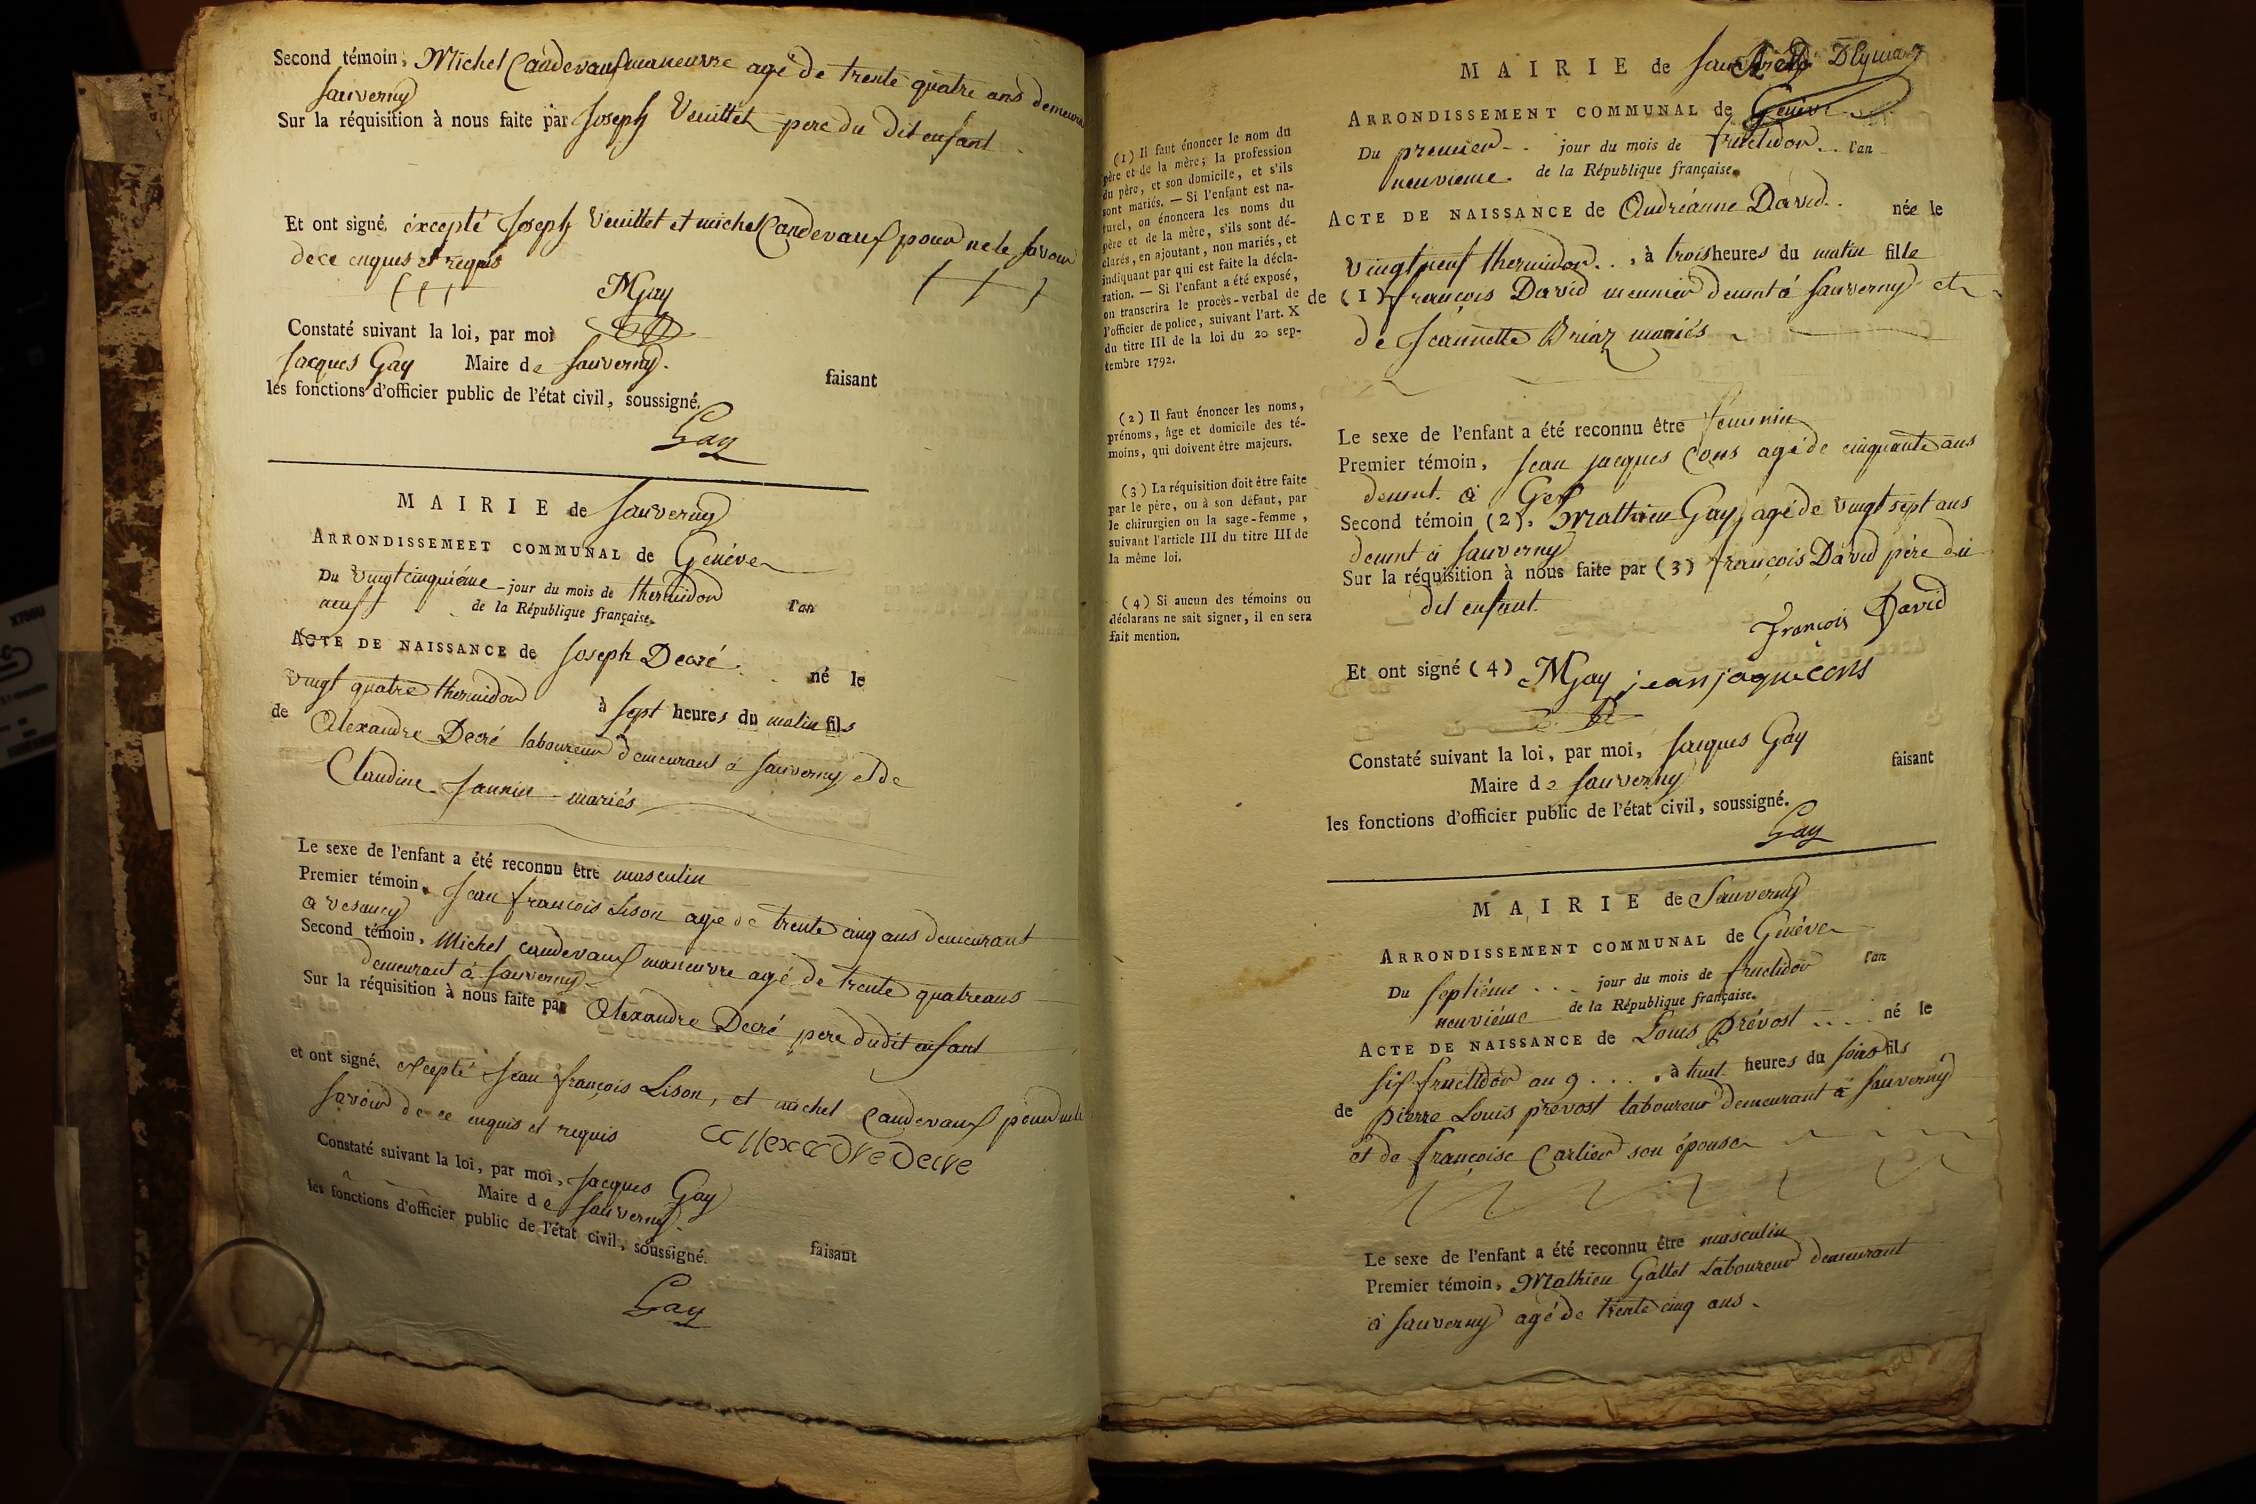 Second témoin, Michel Candevaux maneuvre agé de trente quatre ans demeurant
Sauverny
Sur la réquisition à nous faite par Joseph Veuillet pere du dit enfant
Et ont signé, éxcepté Joseph Veuillet et michel Candevaux pour ne le savoir
de ce enquis et requis
MGay
Constaté suivant la loi, par moi
Jacques Gay Maire de Sauverny. faisant
les fonctions d'officier public de l'état civil, soussigné.
Gay
MAIRIE de Sauverny
ARRONDISSEMEET COMMUNAL de Genéve
Du vingt cinquiéme jour du mois de thermidor l'an
neuf de la République française.
ACTE DE NAISSANCE de Joseph Decré. né le
vingt quatre thermidor à sept heures du matin fils
de Alexandre Decré laboureur demeurant à Sauverny et de
Claudine Jannin mariés
Le sexe de l'enfant a été reconnu être masculin
Premier témoin, Jean françois Lison agé de trente cinq ans demeurant
a vesancy
Second témoin, Michel candevaux maneuvre agé de trente quatre ans
demeurant à Sauverny
Sur la réquisition à nous faite par Alexandre Decré pere du dit enfant
et ont signé, excepté Jean françois Lison, et michel Candevaux pour ne le
savoir de ce enquis et requis
Constaté suivant la loi, par moi, Jacques Gay
Maire de Sauverny. faisant
les fonctions d'officier public de l'état civil, soussigné.
Gay
(1) Il faut énoncer le nom du
père et de la mère; la profession
du père, et son domicile, et s'ils
sont mariés. — Si l'enfant est na-
turel, on énoncera les noms du
père et de la mère, s'ils sont dé-
clarés, en ajoutant, non mariés, et
indiquant par qui est faite la décla-
ration. — Si l'enfant a été exposé,
on transcrira le procès-verbal de
l'officier de police, suivant l'art. X
du titre III de la loi du 20 sep-
tembre 1792.
(2) Il faut énoncer les noms,
prénoms, âge et domicile des té-
moins, qui doivent être majeurs.
(3) La réquisition doit être faite
par le père, ou à son défaut, par
le chirurgien ou la sage-femme,
suivant l'article III du titre III de
la même loi.
(4) Si aucun des témoins ou
déclarans ne sait signer, il en sera
fait mention.
MAIRIE de Sauverny
ARRONDISSEMENT COMMUNAL de Genève
Du premier jour du mois de fructidor l'an
neuvieme de la République française.
ACTE DE NAISSANCE de Andréanne David née le
vingt neuf thermidor, à trois heures du matin fille
de (1) françois David meunier demnt à Sauverny et
de Jeannette Briaz mariés
Le sexe de l'enfant a été reconnu être féminin
Premier témoin, Jean jacques Cons agé de cinquante ans
demnt. à Gex
Second témoin (2), Mathieu Gay, agé de vingt sept ans
demnt à Sauverny
Sur la réquisition à nous faite par (3) françois David pére du
dit enfant.
François David
Et ont signé (4) MGay jean jaque cons
Constaté suivant la loi, par moi, Jacques Gay
Maire de Sauverny faisant
les fonctions d'officier public de l'état civil, soussigné.
Gay
MAIRIE de Sauverny
ARRONDISSEMENT COMMUNAL de Genéve
Du septiéme jour du mois de fructidor l'an
neuviéme de la République française.
ACTE DE NAISSANCE de Louis Prévost né le
six fructidor an 9, à huit heures du soir fils
de pierre Louis prevost laboureur demeurant à Sauverny
et de françoise Carlier son épouse
Le sexe de l'enfant a été reconnu être masculin
Premier témoin, Mathieu Gallet Laboureur demeurant
à Sauverny agé de trente cinq ans.